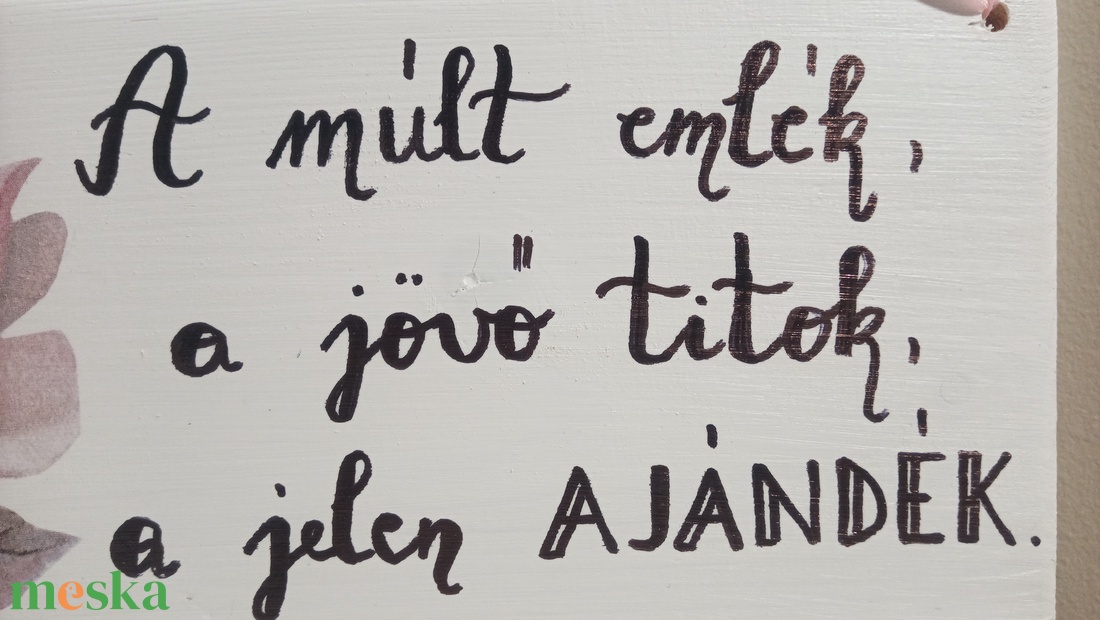 A múlt emlék,
a jövő titok,
a jelen AJÁNDÉK.
meska